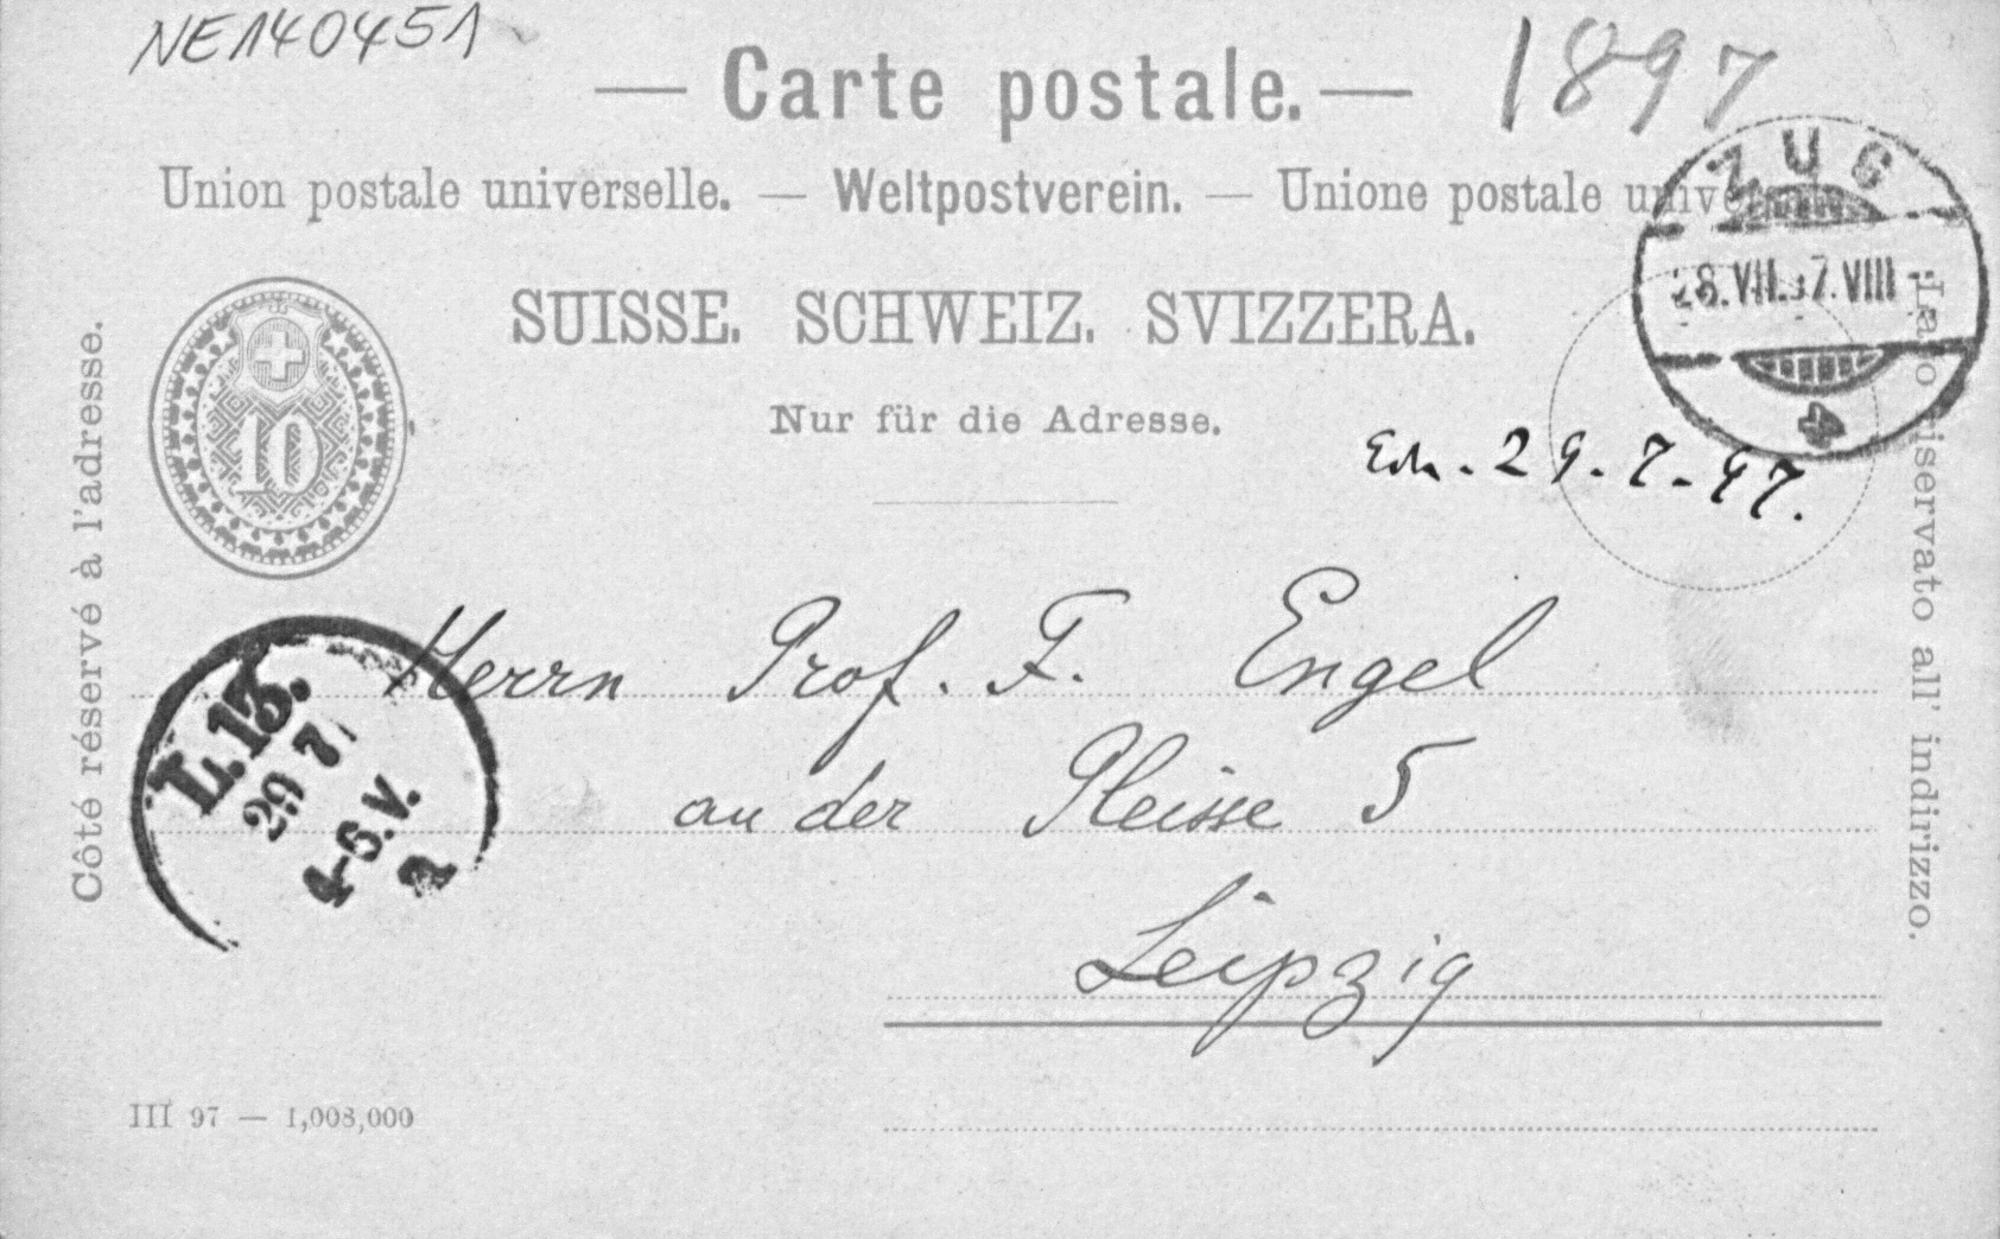 NE140451
— Carte postale. —
1897
Union postale universelle. — Weltpostverein. — Unione postale
ZUG
28.VII.97.VIII
SUISSE. SCHWEIZ. SVIZZERA.
10
Nur für die Adresse.
29.7.97.
Côté réservé à l'adresse.
Lato riservato all' indirizzo.
L.13.
29 7
4-5.V.
a
Herrn Prof. F. Engel
an der Pleisse 5
Leipzig
III 97 — 1,008,000